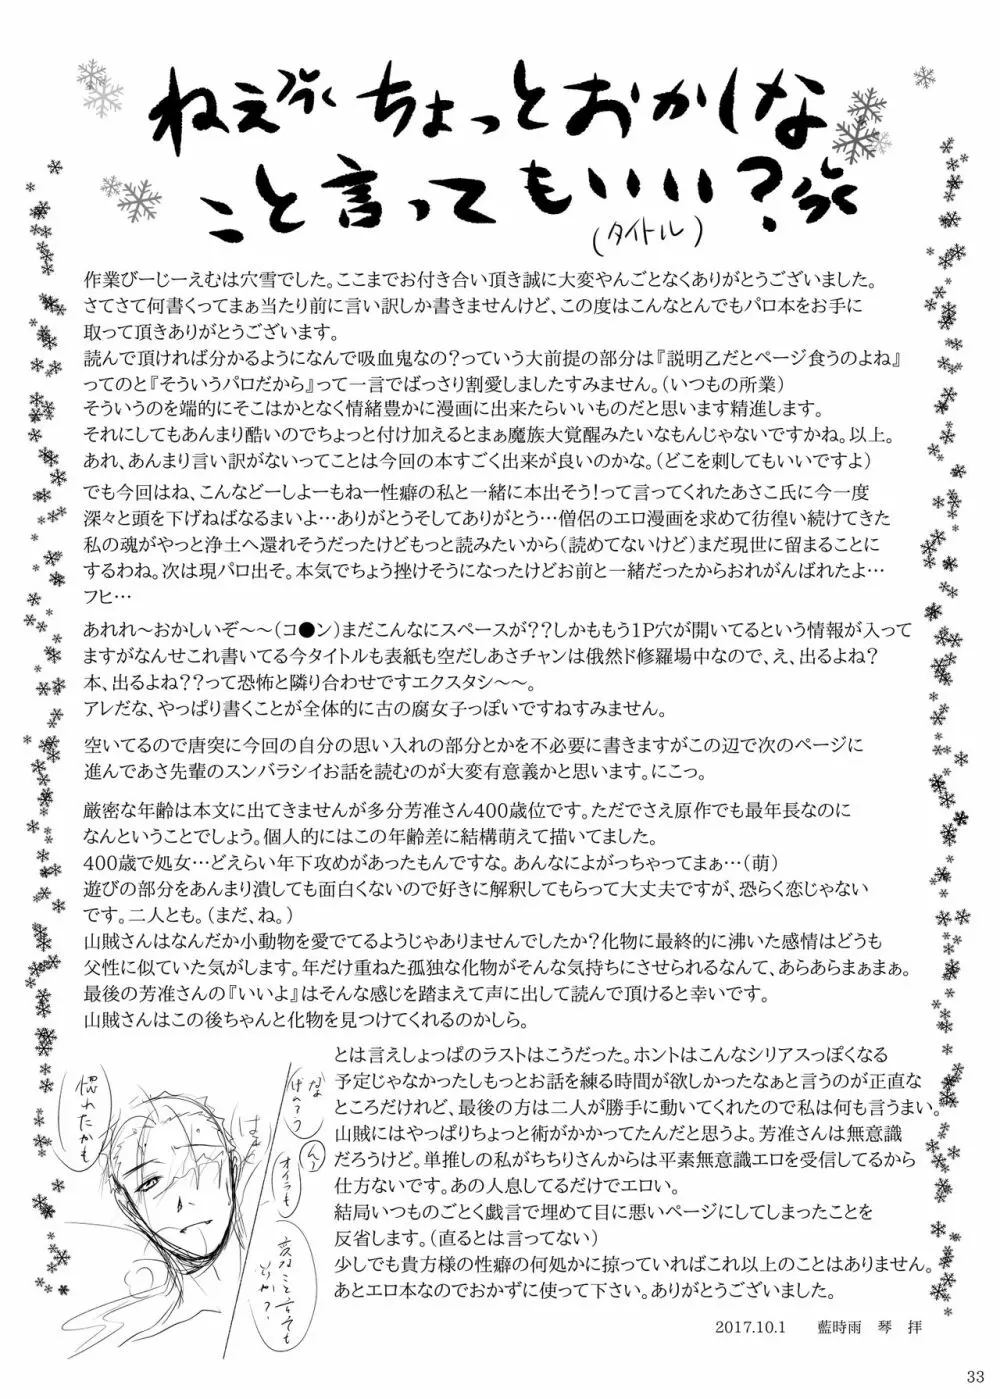 ねえ ちょっとおかしな
こと言ってもいい?
(タイトル)
作業びーじーえむは穴雪でした。ここまでお付き合い頂き誠に大変やんごとなくありがとうございました。
さてさて何書くってまぁ当たり前に言い訳しか書きませんけど、この度はこんなとんでもパロ本をお手に
取って頂きありがとうございます。
読んで頂ければ分かるようになんで吸血鬼なの?っていう大前提の部分は『説明乙だとページ食うのよね』
ってのと『そういうパロだから』って一言でばっさり割愛しましたすみません。(いつもの所業)
そういうのを端的にそこはかとなく情緒豊かに漫画に出来たらいいものだと思います精進します。
それにしてもあんまり酷いのでちょっと付け加えるとまぁ魔族大覚醒みたいなもんじゃないですかね。以上。
あれ、あんまり言い訳がないってことは今回の本すごく出来が良いのかな。(どこを刺してもいいですよ)
でも今回はね、こんなどーしよーもねー性癖の私と一緒に本出そう!って言ってくれたあさこ氏に今一度
深々と頭を下げねばなるまいよ…ありがとうそしてありがとう…僧侶のエロ漫画を求めて彷徨い続けてきた
私の魂がやっと浄土へ還れそうだったけどもっと読みたいから(読めてないけど)まだ現世に留まることに
するわね。次は現パロ出そ。本気でちょう挫けそうになったけどお前と一緒だったからおれがんばれたよ…
フヒ…
あれれ〜おかしいぞ〜〜(コ●ン)まだこんなにスペースが??しかももう1P穴が開いてるという情報が入って
ますがなんせこれ書いてる今タイトルも表紙も空だしあさチャンは俄然ド修羅場中なので、え、出るよね?
本、出るよね??って恐怖と隣り合わせですエクスタシ〜〜。
アレだな、やっぱり書くことが全体的に古の腐女子っぽいですねすみません。
空いてるので唐突に今回の自分の思い入れの部分とかを不必要に書きますがこの辺で次のページに
進んであさ先輩のスンバラシイお話を読むのが大変有意義かと思います。にこっ。
厳密な年齢は本文に出てきませんが多分芳准さん400歳位です。ただでさえ原作でも最年長なのに
なんということでしょう。個人的にはこの年齢差に結構萌えて描いてました。
400歳で処女…どえらい年下攻めがあったもんですな。あんなによがっちゃってまぁ…(萌)
遊びの部分をあんまり潰しても面白くないので好きに解釈してもらって大丈夫ですが、恐らく恋じゃない
です。二人とも。(まだ、ね。)
山賊さんはなんだか小動物を愛でてるようじゃありませんでしたか?化物に最終的に沸いた感情はどうも
父性に似ていた気がします。年だけ重ねた孤独な化物がそんな気持ちにさせられるなんて、あらあらまぁまぁ。
最後の芳准さんの『いいよ』はそんな感じを踏まえて声に出して読んで頂けると幸いです。
山賊さんはこの後ちゃんと化物を見つけてくれるのかしら。
とは言えしょっぱのラストはこうだった。ホントはこんなシリアスっぽくなる
予定じゃなかったしもっとお話を練る時間が欲しかったなぁと言うのが正直な
ところだけれど、最後の方は二人が勝手に動いてくれたので私は何も言うまい。
山賊にはやっぱりちょっと術がかかってたんだと思うよ。芳准さんは無意識
だろうけど。単推しの私がちちりさんからは平素無意識エロを受信してるから
仕方ないです。あの人息してるだけでエロい。
結局いつものごとく戯言で埋めて目に悪いページにしてしまったことを
反省します。(直るとは言ってない)
少しでも貴方様の性癖の何処かに掠っていればこれ以上のことはありません。
あとエロ本なのでおかずに使って下さい。ありがとうございました。
2017.10.1 藍時雨 琴 拝
オイラも
変なこと言っても
惚れたかも
33